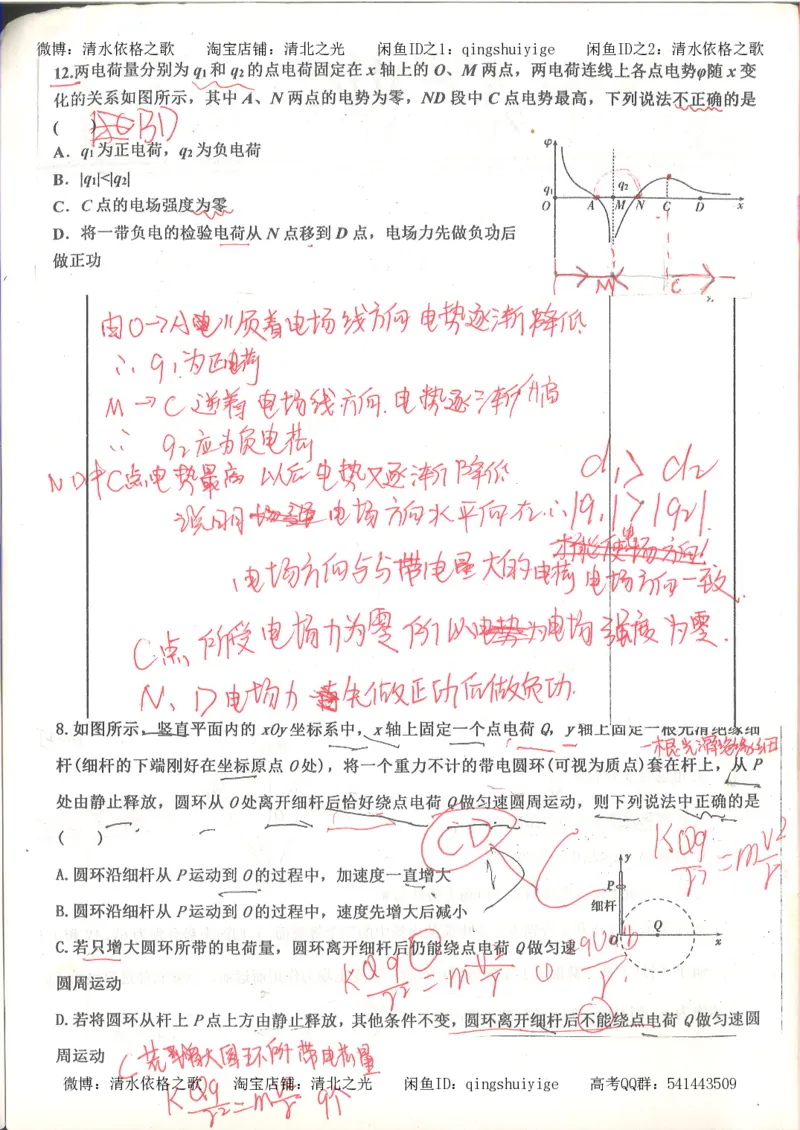 微博：清水依格之歌 淘宝店铺：清北之光 闲鱼ID之1：qingshuiyige 闲鱼ID之2：清水依格之歌
12.两电荷量分别为 q₁和 q₂的点电荷固定在 x 轴上的 O、M 两点，两电荷连线上各点电势φ随 x 变
化的关系如图所示，其中 A、N 两点的电势为零，ND 段中 C 点电势最高，下列说法不正确的是
( ) BD
A．q₁为正电荷，q₂为负电荷
B．|q₁|<|q₂|
C．C 点的电场强度为零
D．将一带负电的检验电荷从 N 点移到 D 点，电场力先做负功后
做正功
φ
q₁ q₂
O A M N C D x
M C
由O→A 电 电场线方向 电势逐渐降低
∴ q₁为正电荷
M→C 逆着电场线方向.电势逐渐升高
∴ q₂应为负电荷
ND中C点电势最高 以后电势又逐渐降低 d₁> d₂
说明 电场方向水平向右∴|q₁|>|q₂|.
电场方向与与带电量大的电荷电场方向一致.
C点所受电场力为零 所以 电场强度为零.
N、D电场力 先做正功后做负功.
8.如图所示，竖直平面内的 xOy 坐标系中，x 轴上固定一个点电荷 Q，y 轴上固定一根光滑绝缘细
一根光滑绝缘细
杆(细杆的下端刚好在坐标原点 O 处)，将一个重力不计的带电圆环(可视为质点)套在杆上，从 P
处由静止释放，圆环从 O 处离开细杆后恰好绕点电荷 Q 做匀速圆周运动，则下列说法中正确的是
( ) CD
KQq/r² = mv²/r
A.圆环沿细杆从 P 运动到 O 的过程中，加速度一直增大
B.圆环沿细杆从 P 运动到 O 的过程中，速度先增大后减小
y
P
细杆
Q
O x
C.若只增大圆环所带的电荷量，圆环离开细杆后仍能绕点电荷 Q 做匀速
圆周运动
KQq/r² = mv²/r
D.若将圆环从杆上 P 点上方由静止释放，其他条件不变，圆环离开细杆后不能绕点电荷 Q 做匀速圆
周运动
C 增大圆环所带电荷量
微博：清水依格之歌 淘宝店铺：清北之光 闲鱼ID：qingshuiyige 高考QQ群：541443509
KQq/r² = mv²/r q个